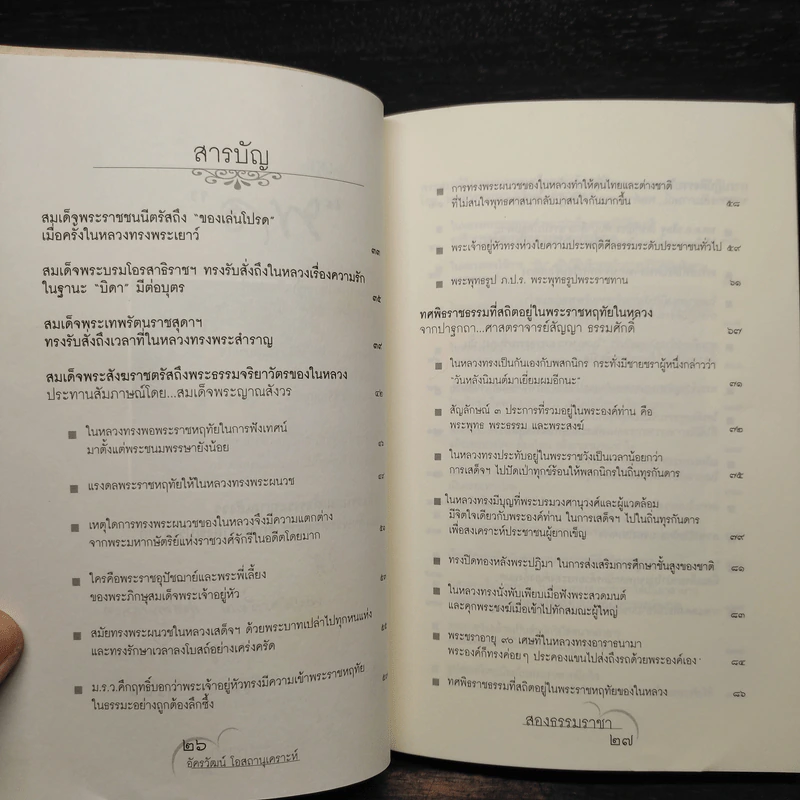 สารบัญ
สมเด็จพระราชชนนีตรัสถึง "ของเล่นโปรด"
เมื่อครั้งในหลวงทรงพระเยาว์
๓๓
สมเด็จพระบรมโอรสาธิราชฯ ทรงรับสั่งถึงในหลวงเรื่องความรัก
ในฐานะ "บิดา" มีต่อบุตร
๓๕
สมเด็จพระเทพรัตนราชสุดาฯ
ทรงรับสั่งถึงเวลาที่ในหลวงทรงพระสำราญ
๓๙
สมเด็จพระสังฆราชตรัสถึงพระธรรมจริยาวัตรของในหลวง
ประทานสัมภาษณ์โดย...สมเด็จพระญาณสังวร
๔๒
■ ในหลวงทรงพอพระราชหฤทัยในการฟังเทศน์
มาตั้งแต่พระชนมพรรษายังน้อย
■ แรงดลพระราชหฤทัยให้ในหลวงทรงพระผนวช
■ เหตุใดการทรงพระผนวชของในหลวงจึงมีความแตกต่าง
จากพระมหากษัตริย์แห่งราชวงศ์จักรีในอดีตโดยมาก
■ ใครคือพระราชอุปัชฌาย์และพระพี่เลี้ยง
ของพระภิกษุสมเด็จพระเจ้าอยู่หัว
■ สมัยทรงพระผนวชในหลวงเสด็จฯ ด้วยพระบาทเปล่าไปทุกหนแห่ง
และทรงรักษาเวลาลงโบสถ์อย่างเคร่งครัด
■ ม.ร.ว.คึกฤทธิ์บอกว่าพระเจ้าอยู่หัวทรงมีความเข้าพระราชหฤทัย
ในธรรมะอย่างถูกต้องลึกซึ้ง
๒๖
อัครวัฒน์ โอสถานุเคราะห์
■ การทรงพระผนวชของในหลวงทำให้คนไทยและต่างชาติ
ที่ไม่สนใจพุทธศาสนากลับมาสนใจกันมากขึ้น
๕๘
■ พระเจ้าอยู่หัวทรงห่วงใยความประพฤติศีลธรรมระดับประชาชนทั่วไป ๕๙
■ พระพุทธรูป ภ.ป.ร. พระพุทธรูปพระราชทาน ๖๑
ทศพิธราชธรรมที่สถิตอยู่ในพระราชหฤทัยในหลวง
จากปาฐกถา...ศาสตราจารย์สัญญา ธรรมศักดิ์ ๖๗
■ ในหลวงทรงเป็นกันเองกับพสกนิกร กระทั่งมีชายชราผู้หนึ่งกล่าวว่า
"วันหลังนิมนต์มาเยี่ยมผมอีกนะ" ๗๑
■ สัญลักษณ์ ๓ ประการที่รวมอยู่ในพระองค์ท่าน คือ
พระพุทธ พระธรรม และพระสงฆ์ ๗๒
■ ในหลวงทรงประทับอยู่ในพระราชวังเป็นเวลาน้อยกว่า
การเสด็จฯ ไปปัดเป่าทุกข์ร้อนให้พสกนิกรในถิ่นทุรกันดาร ๗๕
■ ในหลวงทรงมีบุญที่พระบรมวงศานุวงศ์และผู้แวดล้อม
มีจิตใจเดียวกับพระองค์ท่าน ในการเสด็จฯ ไปในถิ่นทุรกันดาร
เพื่อสงเคราะห์ประชาชนผู้ยากเข็ญ ๗๙
■ ทรงปิดทองหลังพระปฏิมา ในการส่งเสริมการศึกษาชั้นสูงของชาติ ๘๑
■ ในหลวงทรงนั่งพับเพียบเมื่อฟังพระสวดมนต์
และคุกพระชงฆ์เมื่อเข้าไปทักสมณะผู้ใหญ่ ๘๓
■ พระชราอายุ ๙๐ เศษที่ในหลวงทรงอาราธนามา
พระองค์ก็ทรงค่อยๆ ประคองแขนไปส่งถึงรถด้วยพระองค์เอง ๘๔
■ ทศพิธราชธรรมที่สถิตอยู่ในพระราชหฤทัยของในหลวง ๘๖
สองธรรมราชา
๒๗